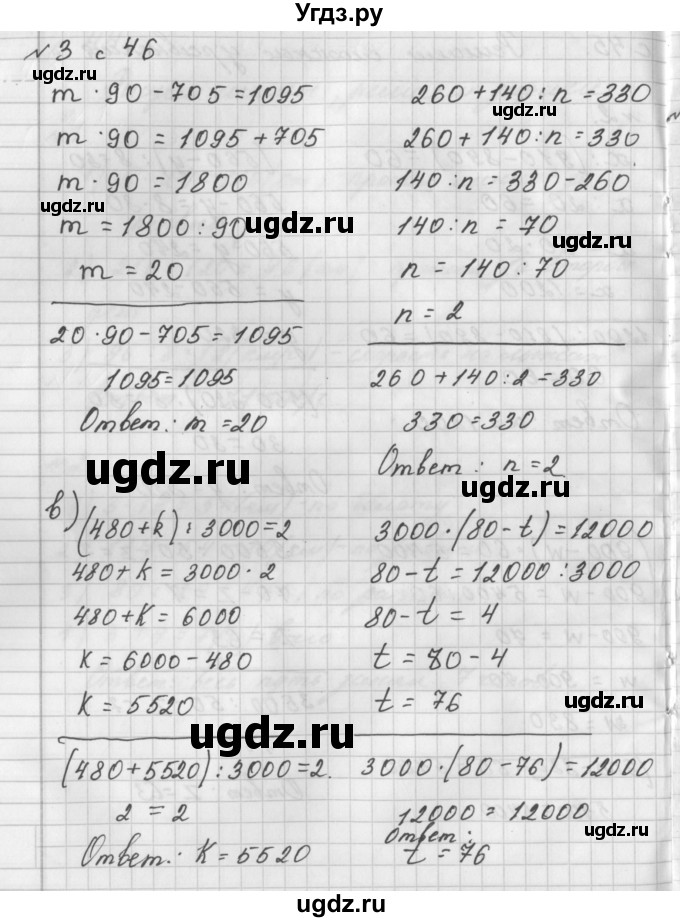 Угдз.ру
№3 с 46
m·90-705=1095
m·90=1095+705
m·90=1800
m=1800:90
m=20
20·90-705=1095
1095=1095
Ответ: m=20
260+140:n=330
260+140:n=330
140:n=330-260
140:n=70
n=140:70
n=2
260+140:2=330
330=330
Ответ: n=2
в)
(480+k):3000=2
480+k=3000·2
480+k=6000
k=6000-480
k=5520
(480+5520):3000=2.
2=2
Ответ: k=5520
3000·(80-t)=12000
80-t=12000:3000
80-t=4
t=80-4
t=76
3000·(80-76)=12000
12000=12000
Ответ:
t=76
ugdz.ru
ugdz.ru
ugdz.ru
ugdz.ru
ugdz.ru
ugdz.ru
ugdz.ru
ugdz.ru
ugdz.ru
ugdz.ru
ugdz.ru
ugdz.ru
ugdz.ru